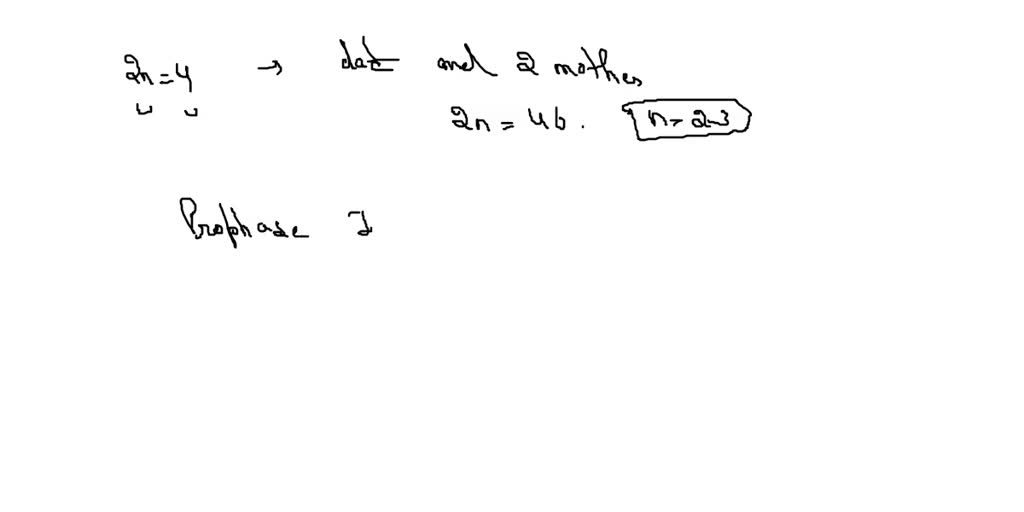 2n=4 → and 2 mother
2n = 46. n= 23
Prophase I